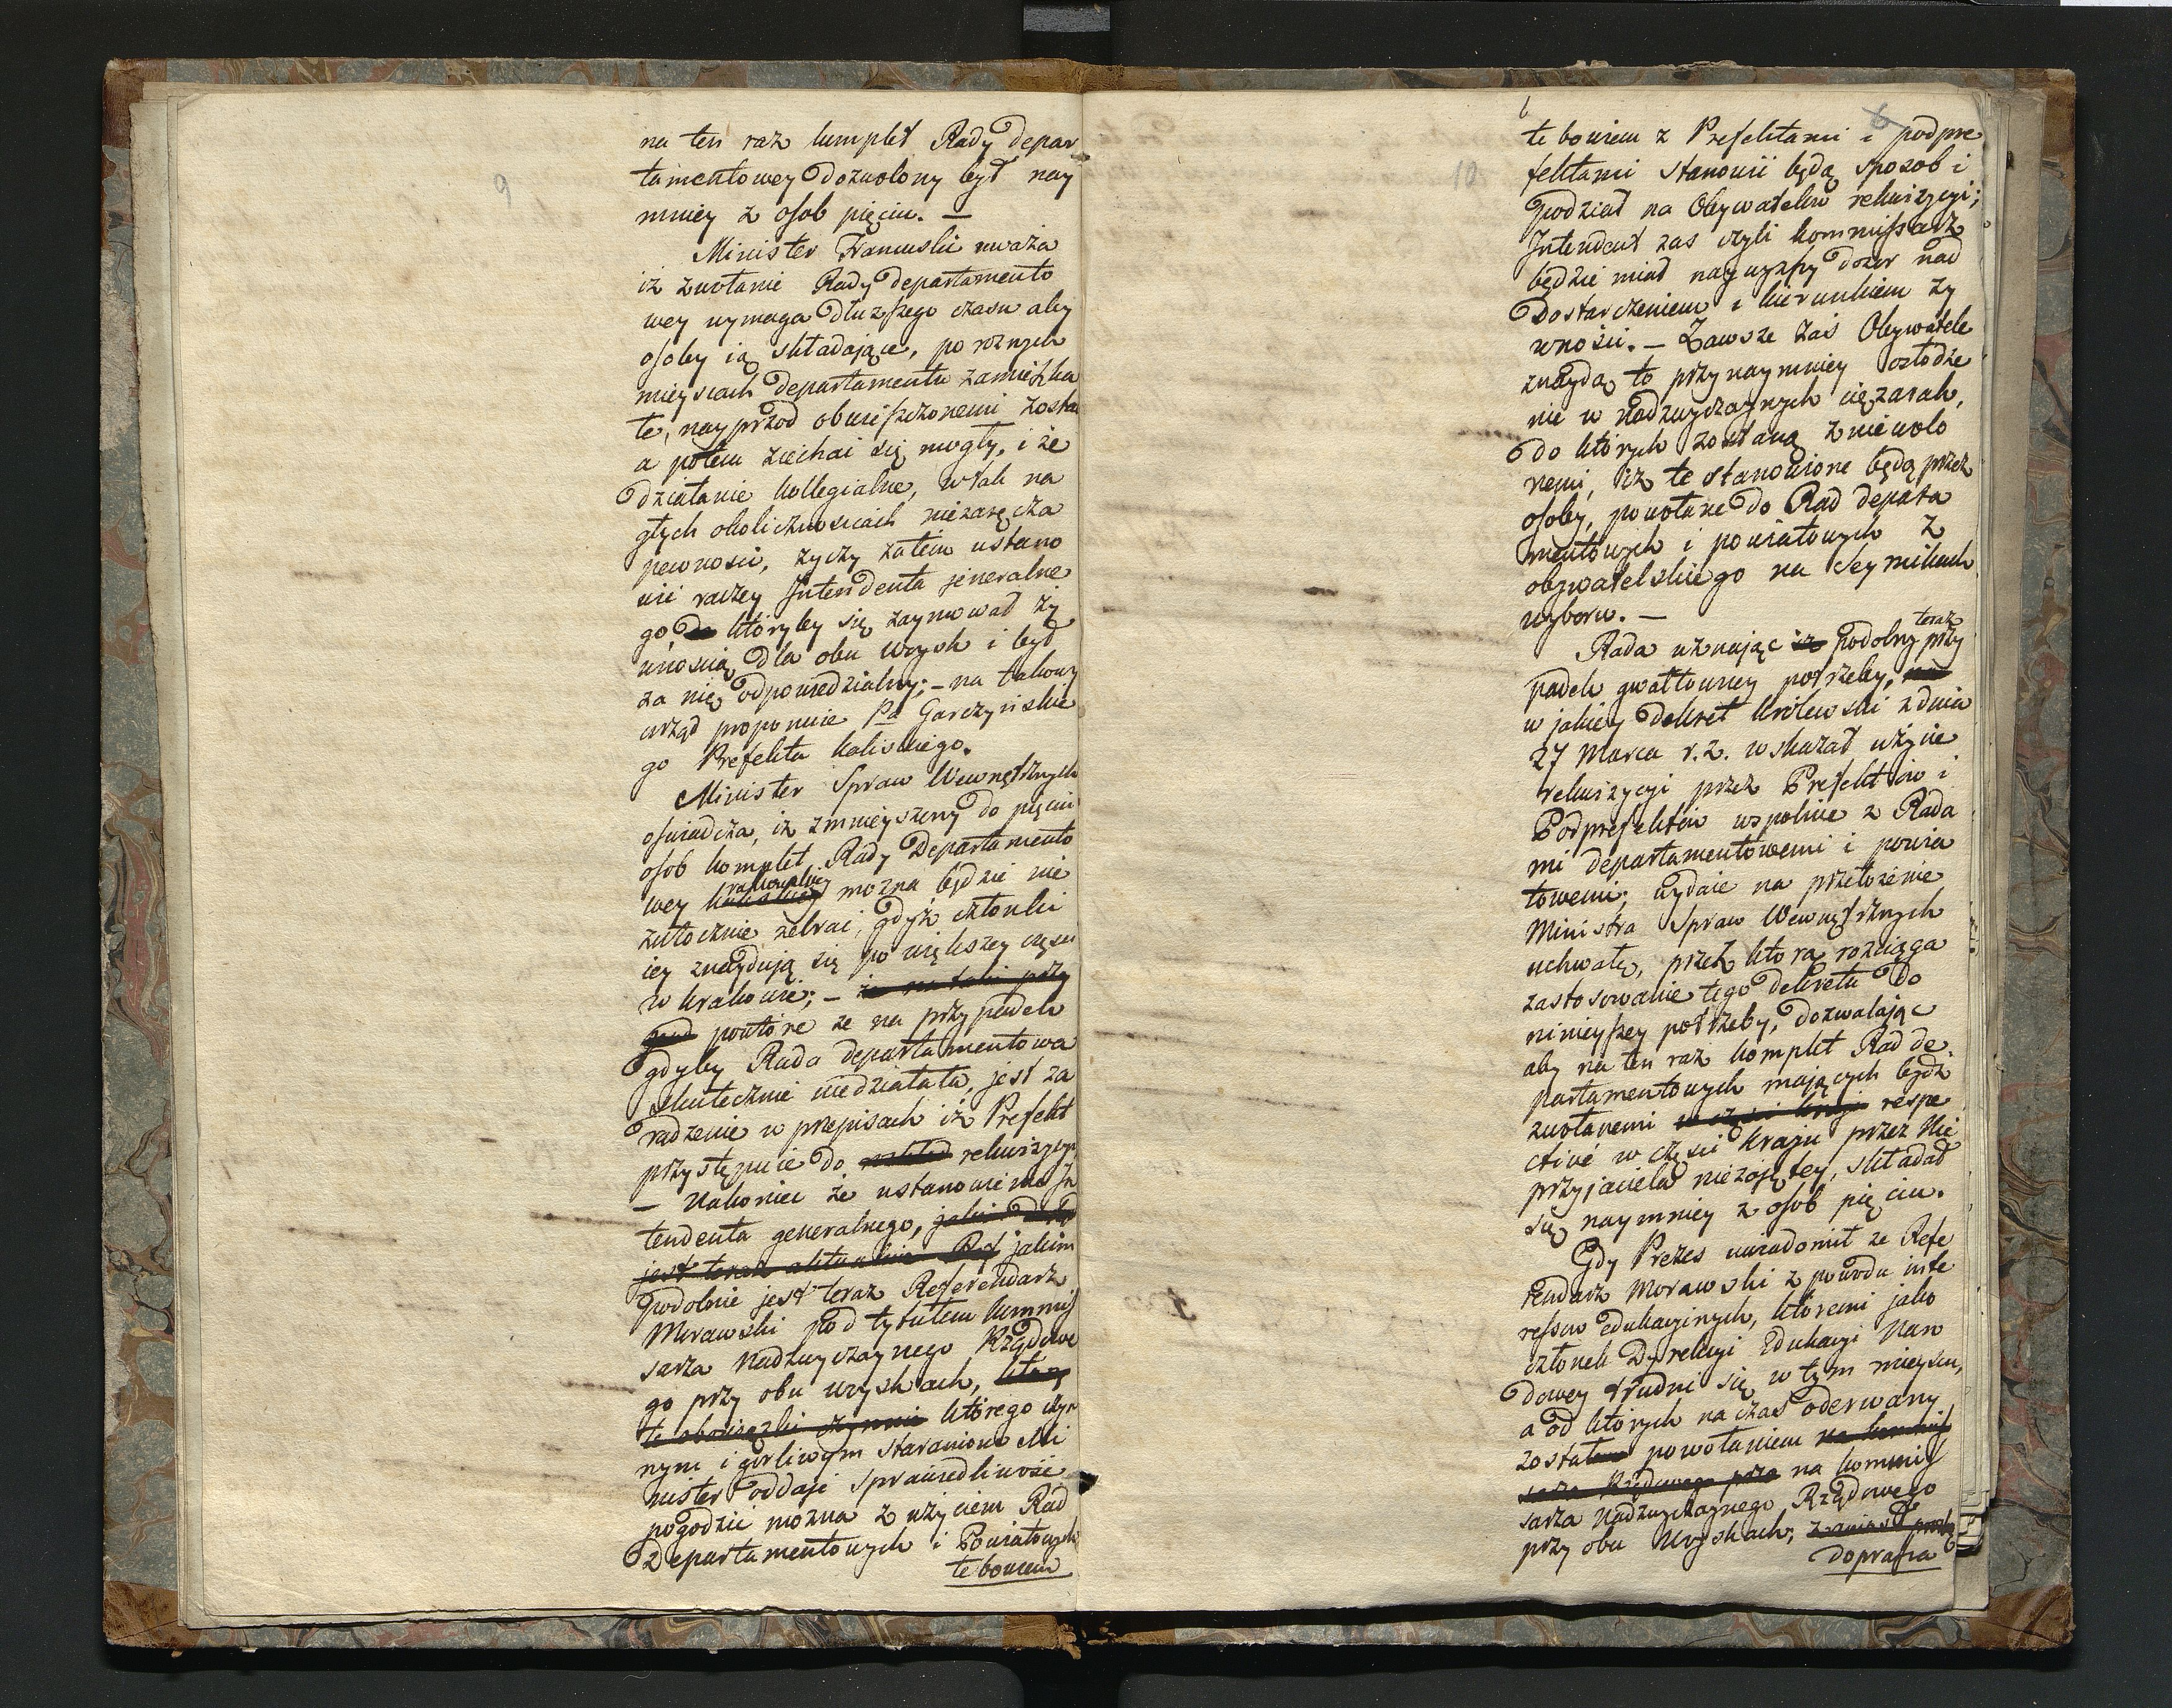 9
na ten raz komplet Rady depar
tamentowey dozwolony był nay
mniey z osob pięciu. —
Minister Francuski uważa
iż zwołanie Rady departamento
wey wymaga dłuższego czasu aby
osoby ią składaiące, po roznych
mieyscach departamentu zamieszka
łe, nayprzod obwieszczonemi zosta
a potem ziechai się mogły, i że
działanie kollegialne, w tak na
głych okolicznosciach niezaręcza
pewnosci, życzy zatem ustano
wić raczey Intendenta jeneralne
go, ktoryby się zaymował ży
wnoscią dla obu woysk i był
za nię odpowiedzialny; — na takowy
urząd proponuie Pa Garczyńskie
go Prefekta kaliskiego.
Minister Spraw Wewnętrznych
oswiadcza, iż zmnieyszony do pięciu
osob komplet Rady Departamento
wey krakowskiey można będzie nie
zwłocznie zebrać, gdyż członki
iey znaydują się po większey częsci
w krakowie; — że na taki przy
pad powtore ze na przypadek
gdyby Rada departamentowa
skutecznie niedziałała, jest za
radzenie w przepisach iż Prefekt
przystępuie do rekwizycyi
— Nakoniec że ustanowienie In
tendenta generalnego,
jest teraz aktualnie Ref jakim
podobnie jest teraz Referendarz
Morawski pod tytułem kommis
sarza nadzwyczaynego Rządowe
go przy obu woyskach, ktory
te obowiązki czynnie którego czyn
nym i gorliwym staraniom Mi
nister oddaje sprawiedliwość
pogodzić można z użyciem Rad
Departamentowych i Powiatowych
te bowiem
6
10
te bowiem z Prefektami i podpre
fektami stanowić będą sposob i
podział na Obywatelow rekwizycyi;
Intendent zas czyli kommissarz
będzie miał naywyższy dozor nad
Dostarczeniem i kierunkiem ży
wności. — Zawsze zaś Obywatele
znaydą to przynaymniey osłodze
nie w nadzwyczaynych ciężarah,
do ktorych zostaną zniewolo
nemi, iż te stanowione będą przez
osoby, powołane do Rad departa
mentowych i powiatowych z
obywatelskiego na seymikach
wyboru. —
teraz
Rada uznając iż podobny przy
padek gwałtowney potrzeby, na
w jakiey dekret krolewski z dnia
27 Marca r. z. wskazał użycie
rekwizycyi przez Prefektów i
Podprefektów wspolnie z Rada
mi departamentowemi i powia
towemi; wydaie na przełożenie
Ministra Spraw Wewnętrznych
uchwałę, przez ktora rozciąga
zastosowanie tego dekretu do
ninieyszey potrzeby, dozwalając
aby na ten raz komplet Rad de
partamentowych mających bydź
zwołanemi w częsci kraju respe
ctivé w częsci kraju przez Nie
przyjaciela niezajętey, składał
się naymniey z osob pięciu.
Gdy Prezes uwiadomił ze Refe
rendarz Morawski z powodu inte
ressow edukacyinych, któremi jako
członek Dyrekcyi Edukacyi Naro
dowey trudni się w tym mieyscu,
a od których na czas oderwany
został powołaniem na kommis
sarza Rządowego prze na kommis
sarza Nadzwyczaynego Rządowego
przy obu woyskach; zamiast
doprasza